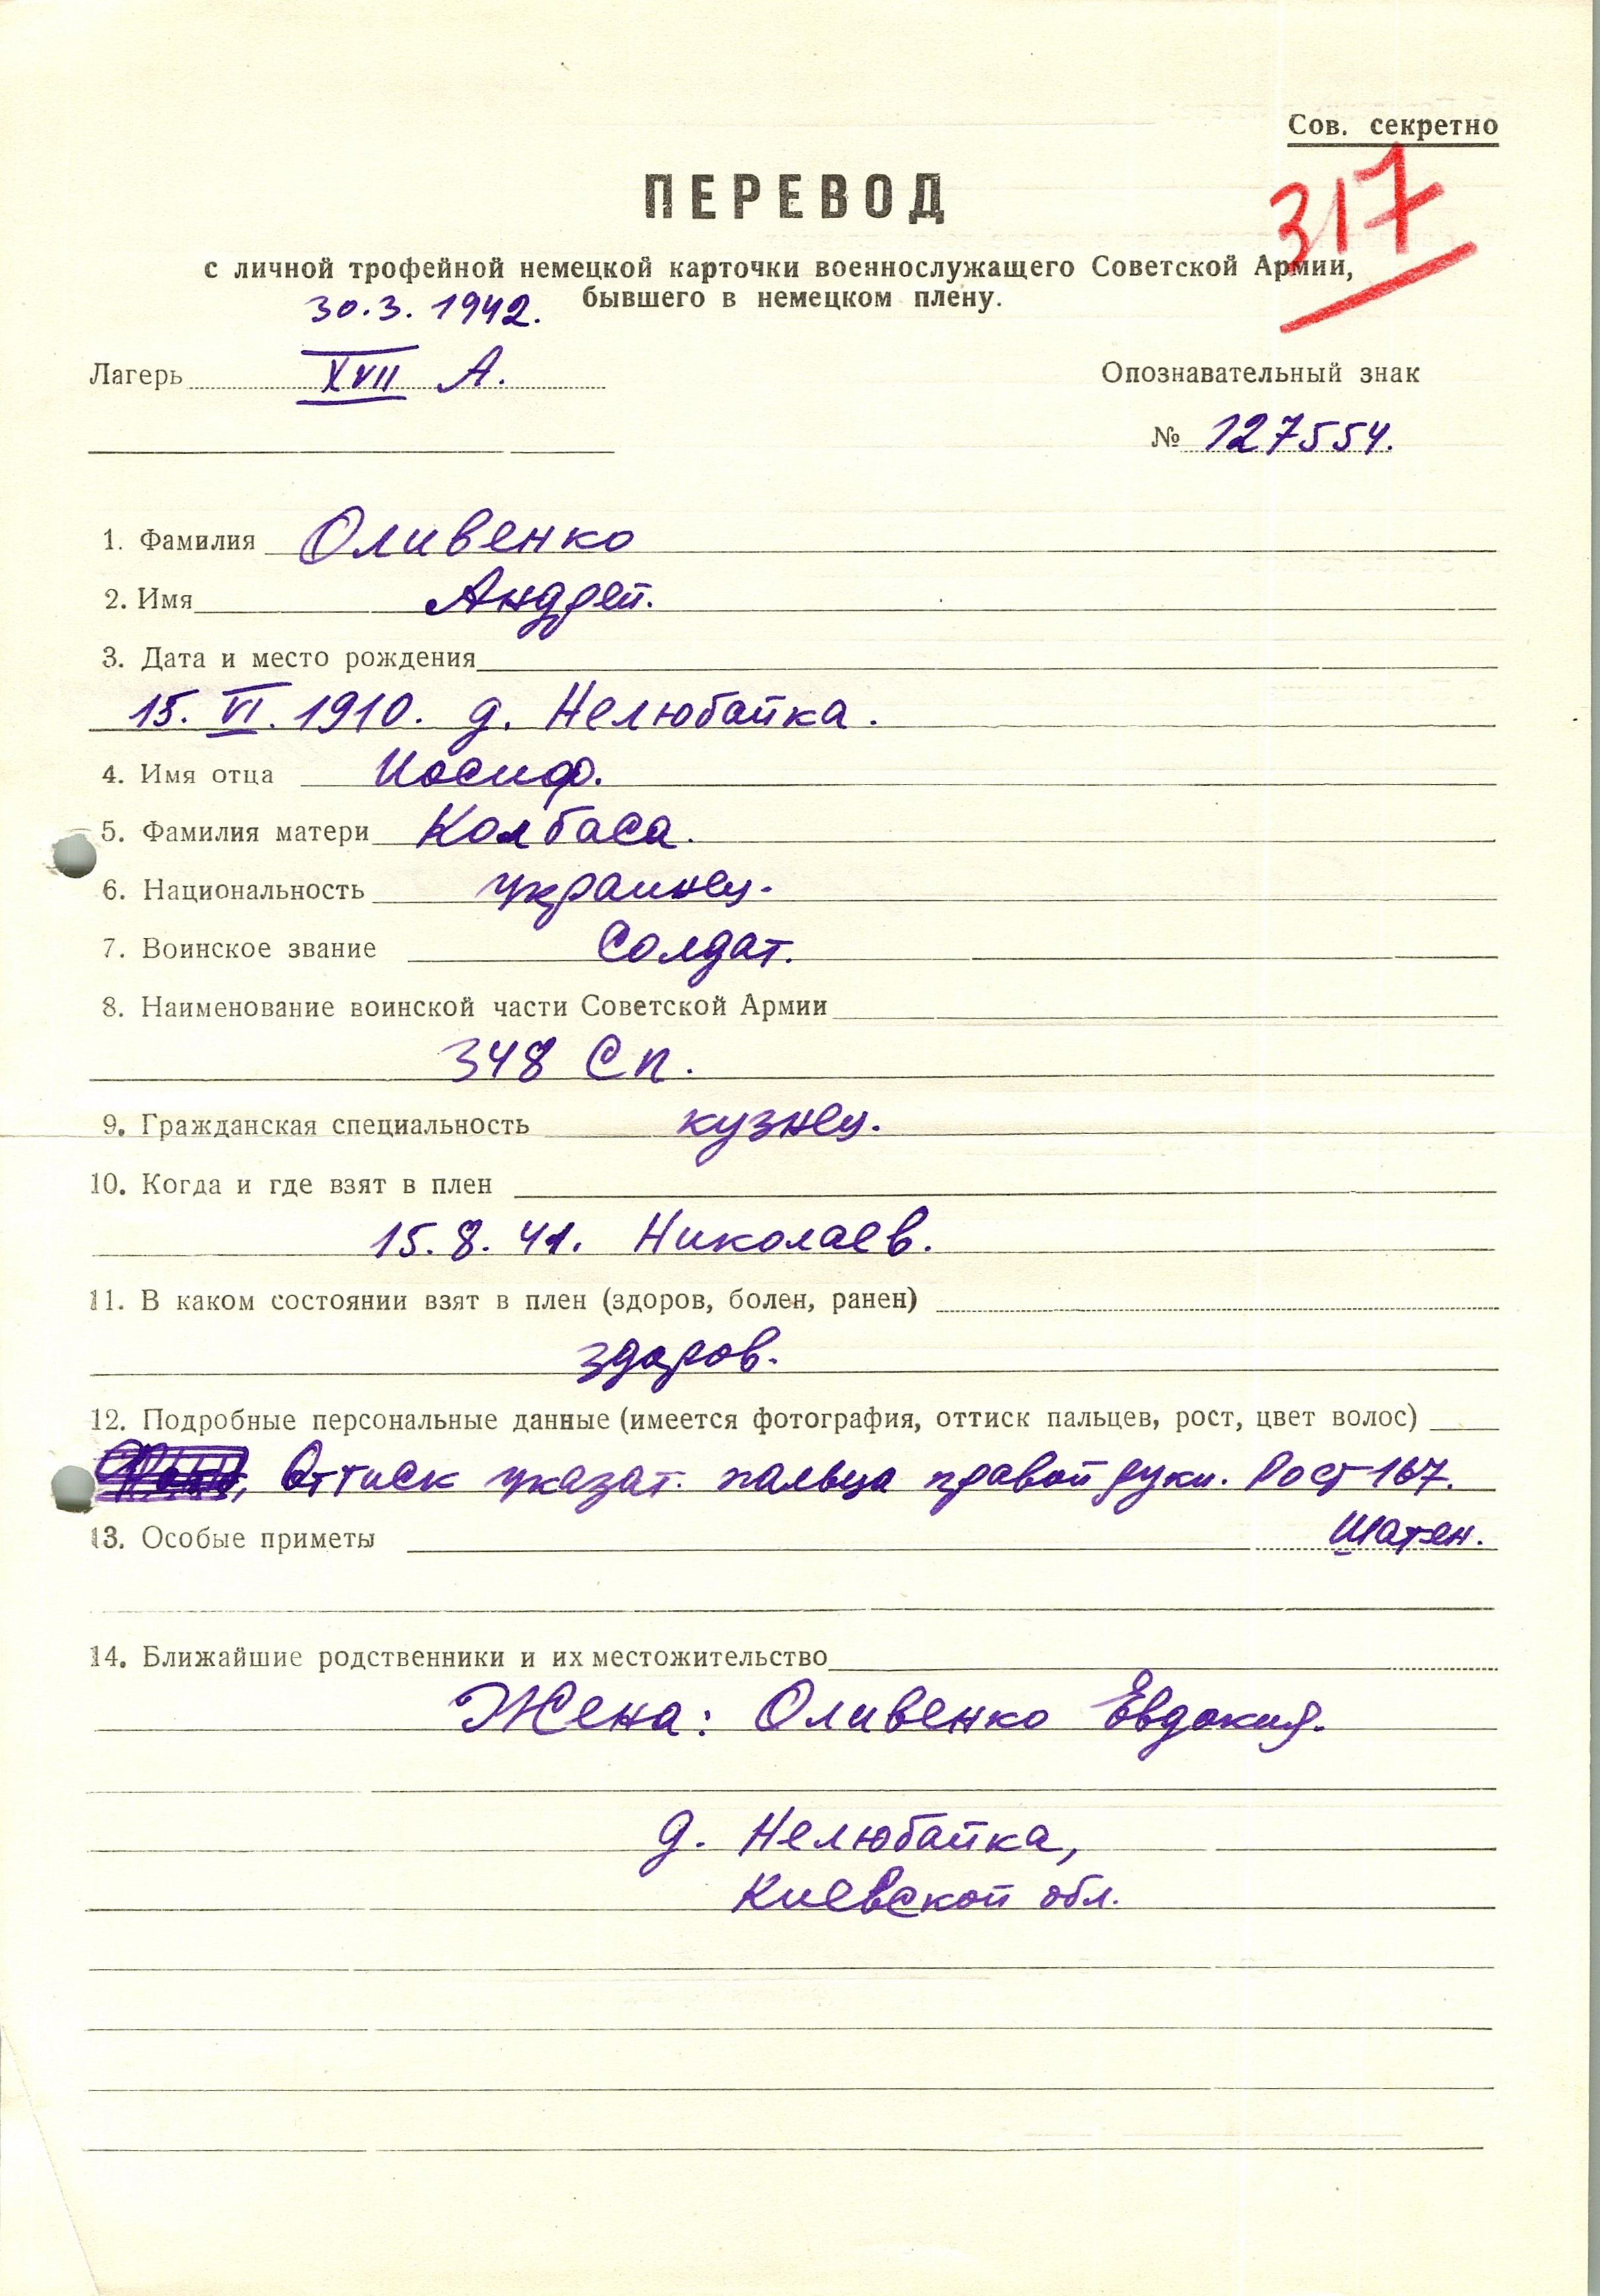 Сов. секретно
317
ПЕРЕВОД
с личной трофейной немецкой карточки военнослужащего Советской Армии,
бывшего в немецком плену.
30.3. 1942.
Лагерь XVII А.
Опознавательный знак
№ 127554.
1. Фамилия Оливенко
2. Имя Андрей.
3. Дата и место рождения
15. VI. 1910. д. Нелюбайка.
4. Имя отца Иосиф.
5. Фамилия матери Колбаса.
6. Национальность украинец.
7. Воинское звание Солдат.
8. Наименование воинской части Советской Армии
348 Сп.
9. Гражданская специальность кузнец.
10. Когда и где взят в плен
15. 8. 41. Николаев.
11. В каком состоянии взят в плен (здоров, болен, ранен)
здоров.
12. Подробные персональные данные (имеется фотография, оттиск пальцев, рост, цвет волос)
Оттиск указат. пальца правой руки. Рост 167.
13. Особые приметы Шатен.
14. Ближайшие родственники и их местожительство
Жена: Оливенко Евдокия.
д. Нелюбайка,
Киевской обл.